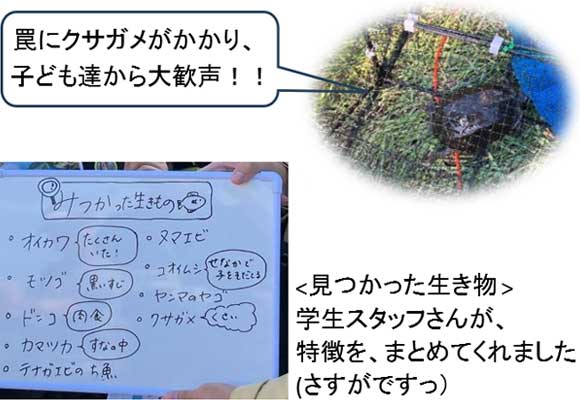 罠にクサガメがかかり、
子ども達から大歓声！！
みつかった生きもの
・オイカワ たくさんいた！
・モツゴ 黒いすじ
・ドンコ 肉食
・カマツカ すなの中
・テナガエビのち魚
・ヌマエビ
・コオイムシ せなかで子をもたくる
・ヤンマのヤゴ
・クサガメ くさい
<見つかった生き物>
学生スタッフさんが、
特徴を、まとめてくれました
(さすがですっ）